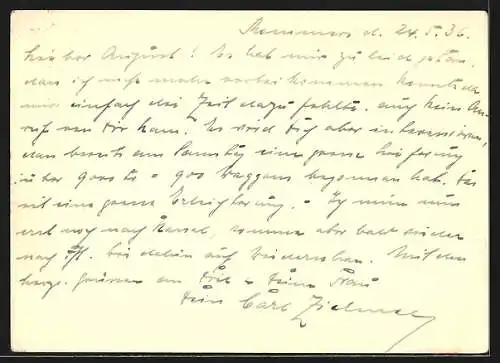 d. 24.5.36.
Lieber August! Es hat mir zu leid getan,
das ich nicht mehr vorbei kommen konnte da
mir einfach die Zeit dazu fehlte. auch kein An-
ruf von Dir kam. Es wird Dich aber interessieren,
dan bereits am Samstag eine grosse Lieferung
über - 900 Waggons begonnen hat. Das
ist eine grosse Erleichterung. - Ich muss nun
erst noch nach Kassel, komme aber bald wieder
nach Bis dahin auf Wiedersehen. Mit den
herzl. Grüssen an Dich u. Deine Frau
Dein Carl